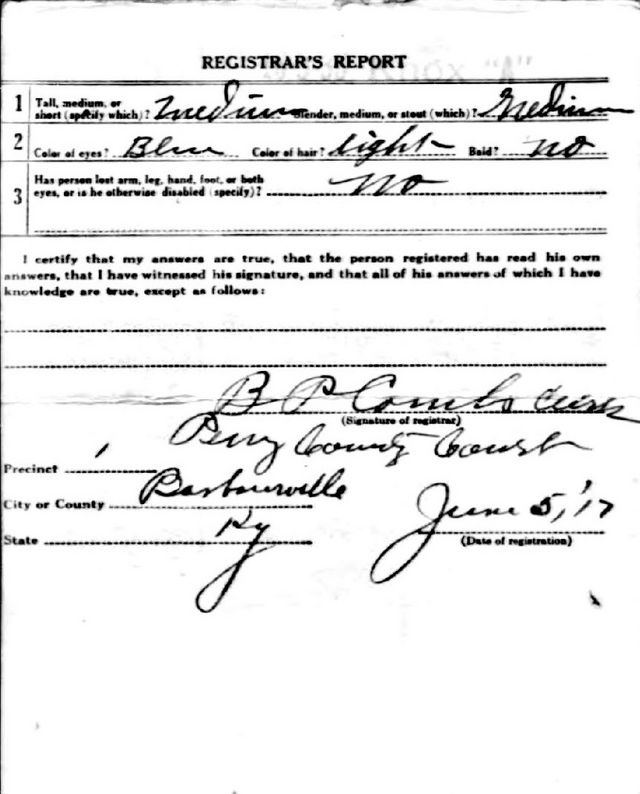 REGISTRAR'S REPORT
1 Tall, medium, or short (specify which)? Medium Slender, medium, or stout (which)? Medium
2 Color of eyes? Blue Color of hair? Light Bald? No
3 Has person lost arm, leg, hand, foot, or both eyes, or is he otherwise disabled (specify)? No
I certify that my answers are true, that the person registered has read his own
answers, that I have witnessed his signature, and that all of his answers of which I have
knowledge are true, except as follows:
B P Combs Clerk
(Signature of registrar)
Perry County Court
Precinct 1
City or County Barbourville
State Ky June 5, '17
(Date of registration)